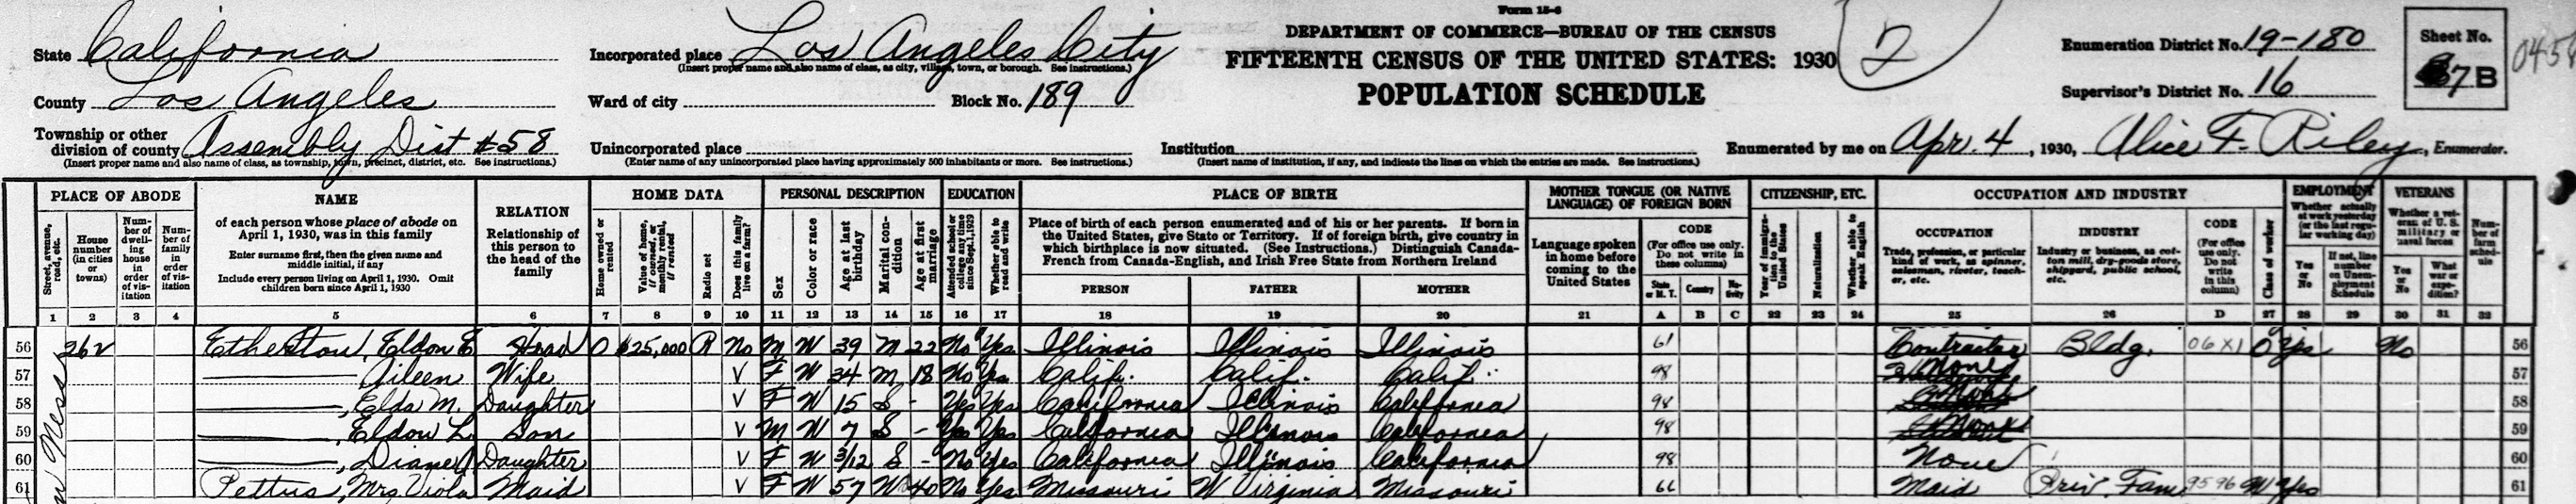 Form 15-6
State California
Incorporated place Los Angeles City
(Insert proper name and also name of class, as city, village, town, or borough. See instructions.)
DEPARTMENT OF COMMERCE—BUREAU OF THE CENSUS
FIFTEENTH CENSUS OF THE UNITED STATES: 1930
POPULATION SCHEDULE
2
Enumeration District No. 19-180
Sheet No.
7 B
County Los Angeles
Ward of city
Block No. 189
Supervisor's District No. 16
Township or other
division of county Assembly Dist #58
(Insert proper name and also name of class, as township, town, precinct, district, etc. See instructions.)
Unincorporated place
(Enter name of any unincorporated place having approximately 500 inhabitants or more. See instructions.)
Institution
(Insert name of institution, if any, and indicate the lines on which the entries are made. See instructions.)
Enumerated by me on Apr. 4, 1930, Alice F. Riley, Enumerator.
PLACE OF ABODE
Street, avenue, road, etc.
House number (in cities or towns)
Number of dwelling house in order of visitation
Number of family in order of visitation
NAME
of each person whose place of abode on
April 1, 1930, was in this family
Enter surname first, then the given name and
middle initial, if any
Include every person living on April 1, 1930. Omit
children born since April 1, 1930
RELATION
Relationship of
this person to
the head of the
family
HOME DATA
Home owned or rented
Value of home, if owned, or monthly rental, if rented
Radio set
Does this family live on a farm?
PERSONAL DESCRIPTION
Sex
Color or race
Age at last birthday
Marital condition
Age at first marriage
EDUCATION
Attended school or college any time since Sept. 1, 1929
Whether able to read and write
PLACE OF BIRTH
Place of birth of each person enumerated and of his or her parents. If born in
the United States, give State or Territory. If of foreign birth, give country in
which birthplace is now situated. (See Instructions.) Distinguish Canada-
French from Canada-English, and Irish Free State from Northern Ireland
PERSON FATHER MOTHER
MOTHER TONGUE (OR NATIVE
LANGUAGE) OF FOREIGN BORN
Language spoken
in home before
coming to the
United States
CODE
(For office use only.
Do not write in
these columns)
State or M. T.
Country
Nativity
CITIZENSHIP, ETC.
Year of immigration to the United States
Naturalization
Whether able to speak English
OCCUPATION AND INDUSTRY
OCCUPATION
Trade, profession, or particular
kind of work, as spinner,
salesman, riveter, teach-
er, etc.
INDUSTRY
Industry or business, as cot-
ton mill, dry-goods store,
shipyard, public school,
etc.
CODE
(For office
use only.
Do not
write
in this
column)
Class of worker
EMPLOYMENT
Whether actually
at work yesterday
(or the last regu-
lar working day)
Yes or No
If not, line number on Unemployment Schedule
VETERANS
Whether a vet-
eran of U. S.
military or
naval forces
Yes or No
What war or expedition?
Number of farm schedule
1 2 3 4 5 6 7 8 9 10 11 12 13 14 15 16 17 18 19 20 21 A B C 22 23 24 25 26 D 27 28 29 30 31 32
56 262 Etherton, Eldon E Head O $25,000 R No M W 39 M 22 No Yes Illinois Illinois Illinois 61 Contractor Bldg. 06X1 O Yes No 56
57 Aileen Wife V F W 34 M 18 No Yes Calif. Calif. Calif. 98 None 57
58 , Elda M. Daughter V F W 15 S - Yes Yes California Illinois California 98 58
59 , Eldon L Son V M W 7 S - Yes Yes California Illinois California 98 59
60 , Diane Daughter V F W 3/12 S - No Yes California Illinois California 98 None 60
61 Pettus, Mrs. Viola Maid V F W 57 W 40 No Yes Missouri W Virginia Missouri 66 Maid Priv. Fam 9596 W Yes 61